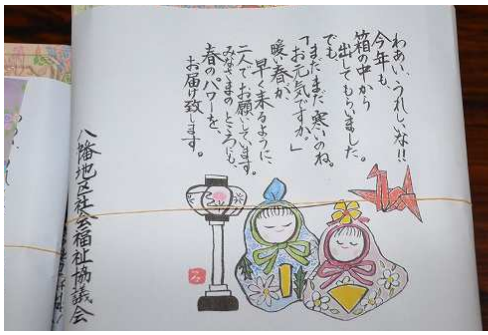 わあい、うれしいな!!
今年も、
箱の中から
出してもらいました。
でも
「まだまだ寒いのね、
お元気ですか。」
暖い春が、
早く来るように、
二人でお願いしています。
みなさまのところにも、
春のパワーを
お届け致します。
八幡地区社会福祉協議会